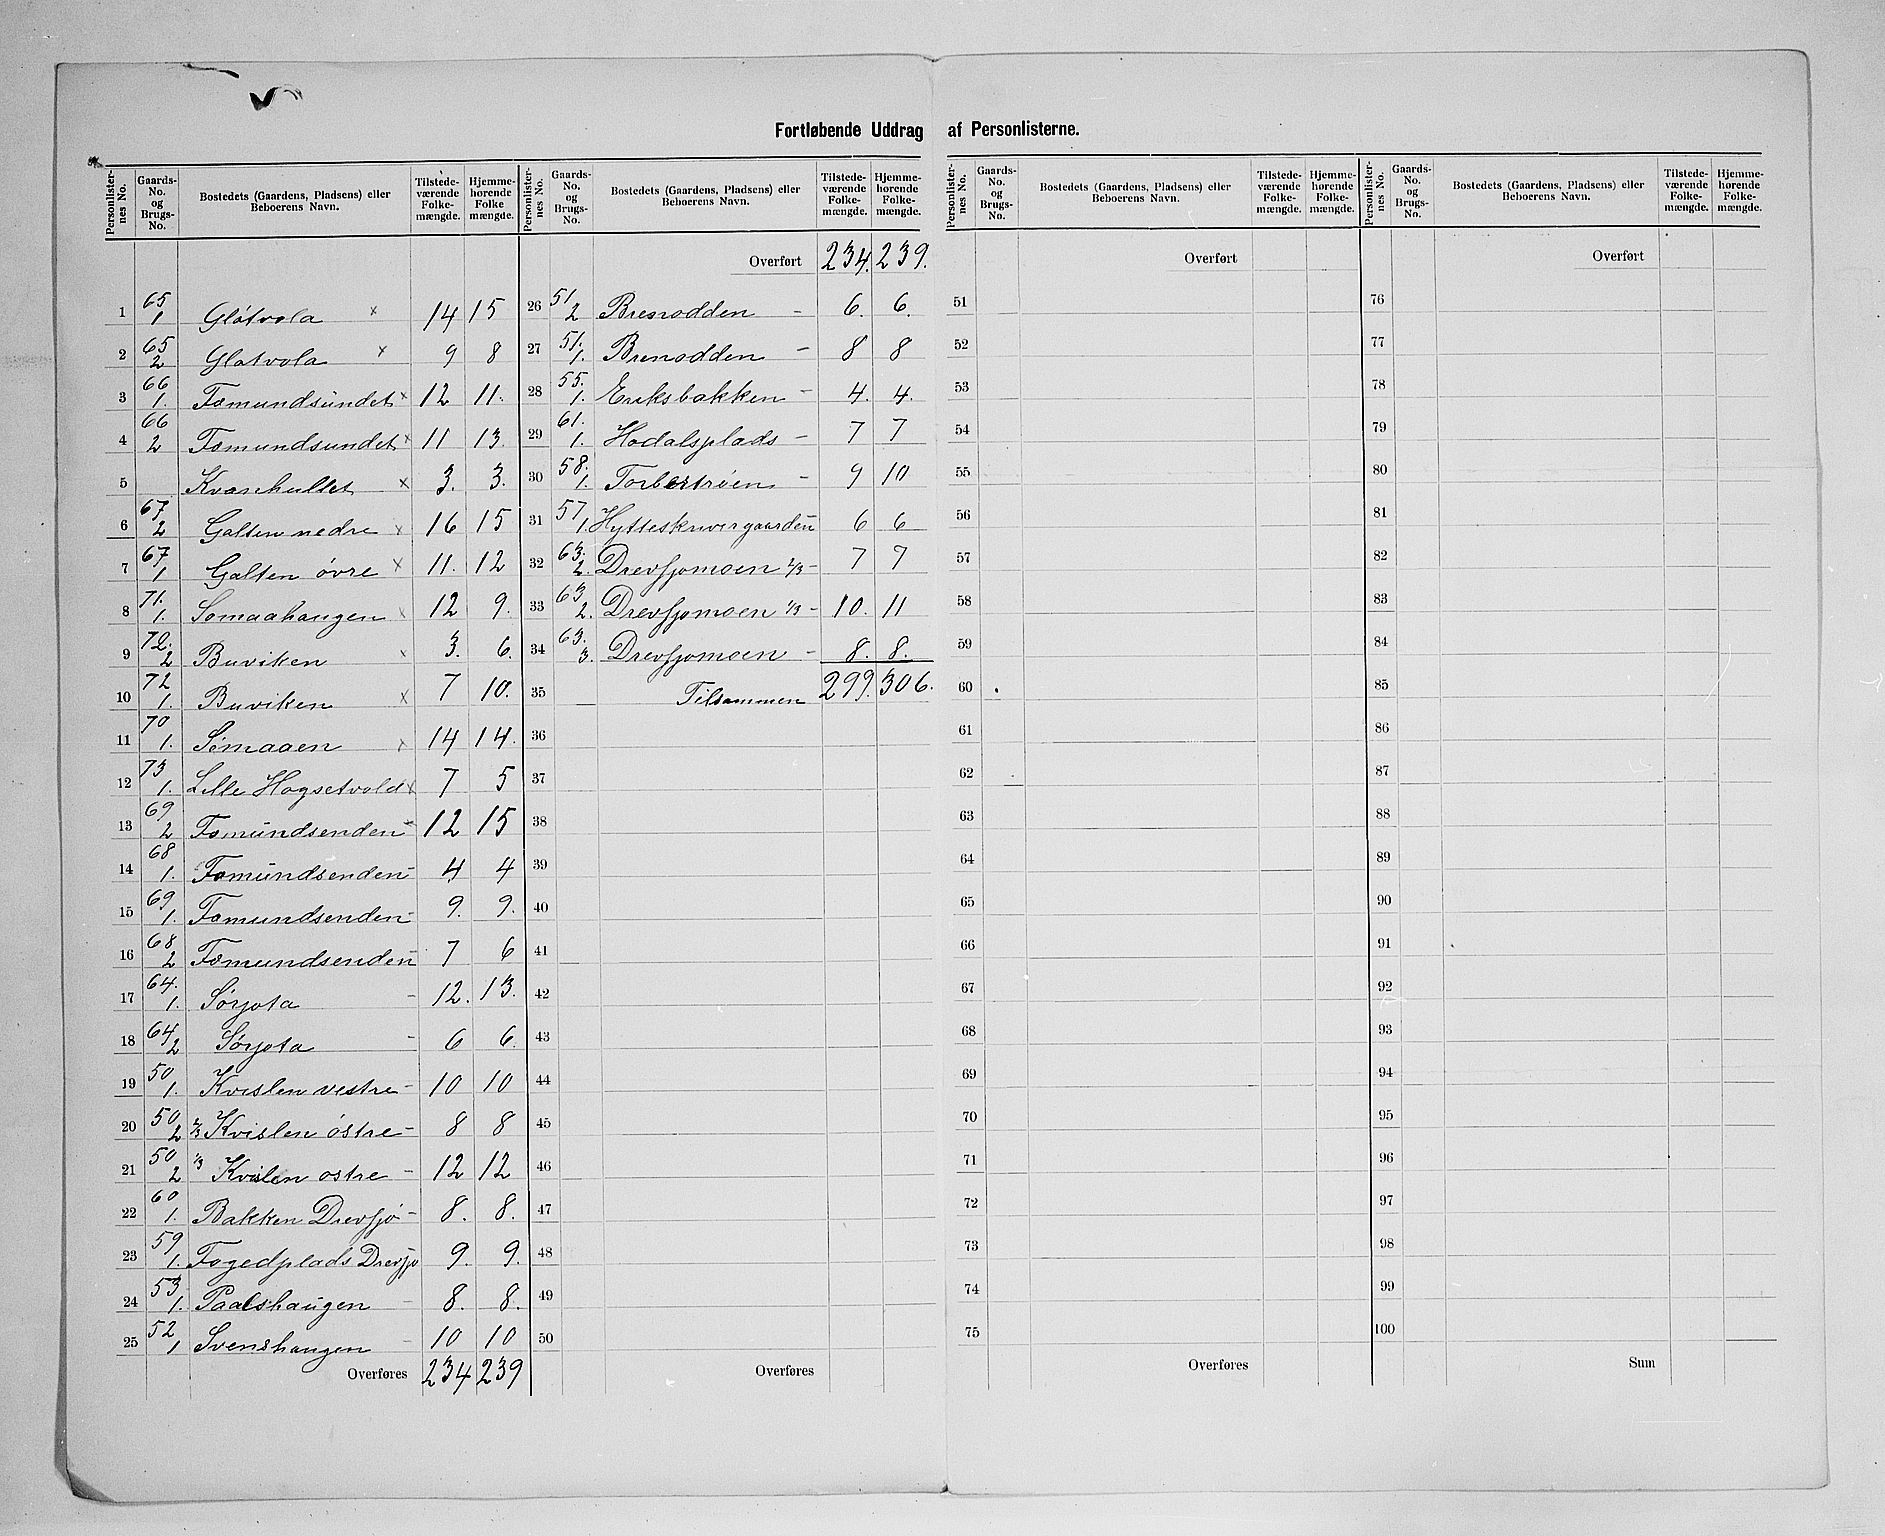 Fortløbende Uddrag af Personlisterne.
Personlister-nes No. Gaards-No. og Brugs-No. Bostedets (Gaardens, Pladsens) eller Beboerens Navn. Tilstede-værende Folke-mængde. Hjemme-hørende Folke mængde.
1 65/1 Gløtvola x 14 15
2 65/2 Gløtvola x 9 8
3 66/1. Fæmundsundet x 12 11.
4 66/2 Fæmundsundet x 11 13.
5 Kvænhullet x 3. 3.
6 67/2 Galten nedre x 16 15
7 67/1 Galten øvre x 11. 12
8 71./1. Sømaahaugen x 12 9.
9 72./2 Buviken x 3. 6.
10 72/1. Buviken x 7 10.
11 70/1. Sømaaen x 14 14.
12 73/1. Lille Hogsetvold x 7 5
13 69/2 Fæmundsenden 12 15
14 68/1. Fæmundsenden - 4 4
15 69/1. Fæmundsenden - 9. 9.
16 68/2 Fæmundsenden 7 6
17 64./1. Sørjota - 12. 13.
18 64/2 Sørjota - 6 6.
19 50/1. Kvislen vestre - 10 10
20 50/2 2/3 Kvislen østre - 8 8
21 50/2 1/3 Kvislen østre - 12 12
22 60/1. Bakken Drevsjø - 8. 8.
23 59/1. Fogedplads Drevsjø 9. 9.
24 53/1. Paalshaugen - 8. 8.
25 52/1 Svenshaugen - 10 10
Overføres 234 239
Personlister-nes No. Gaards-No. og Brugs-No. Bostedets (Gaardens, Pladsens) eller Beboerens Navn. Tilstede-værende Folke-mængde. Hjemme-hørende Folke-mængde.
Overført 234. 239.
26 51/2 Brenodden - 6. 6.
27 51./1. Brenodden - 8 8
28 55./1. Eriksbakken - 4. 4.
29 61./1. Hodalsplads - 7 7
30 58./1. Torbertrøen - 9 10
31 57/1. Hytteskrivergaarden 6 6
32 63./2. Drevsjomoen 2/3 - 7 7
33 63/2. Drevsjomoen 1/3 - 10. 11
34 63./3. Drevsjomoen - 8. 8.
35 Tilsammen 299. 306.
36
37
38
39
40
41
42
43
44
45
46
47
48
49
50
Overføres
Personlister-nes No. Gaards-No. og Brugs-No. Bostedets (Gaardens, Pladsens) eller Beboerens Navn. Tilstede-værende Folke-mængde. Hjemme-hørende Folke-mængde.
Overført
51
52
53
54
55
56
57
58
59
60
61
62
63
64
65
66
67
68
69
70
71
72
73
74
75
Overføres
Personlister-nes No. Gaards-No. og Brugs-No. Bostedets (Gaardens, Pladsens) eller Beboerens Navn. Tilstede-værende Folke-mængde. Hjemme-hørende Folke-mængde.
Overført
76
77
78
79
80
81
82
83
84
85
86
87
88
89
90
91
92
93
94
95
96
97
98
99
100
Sum